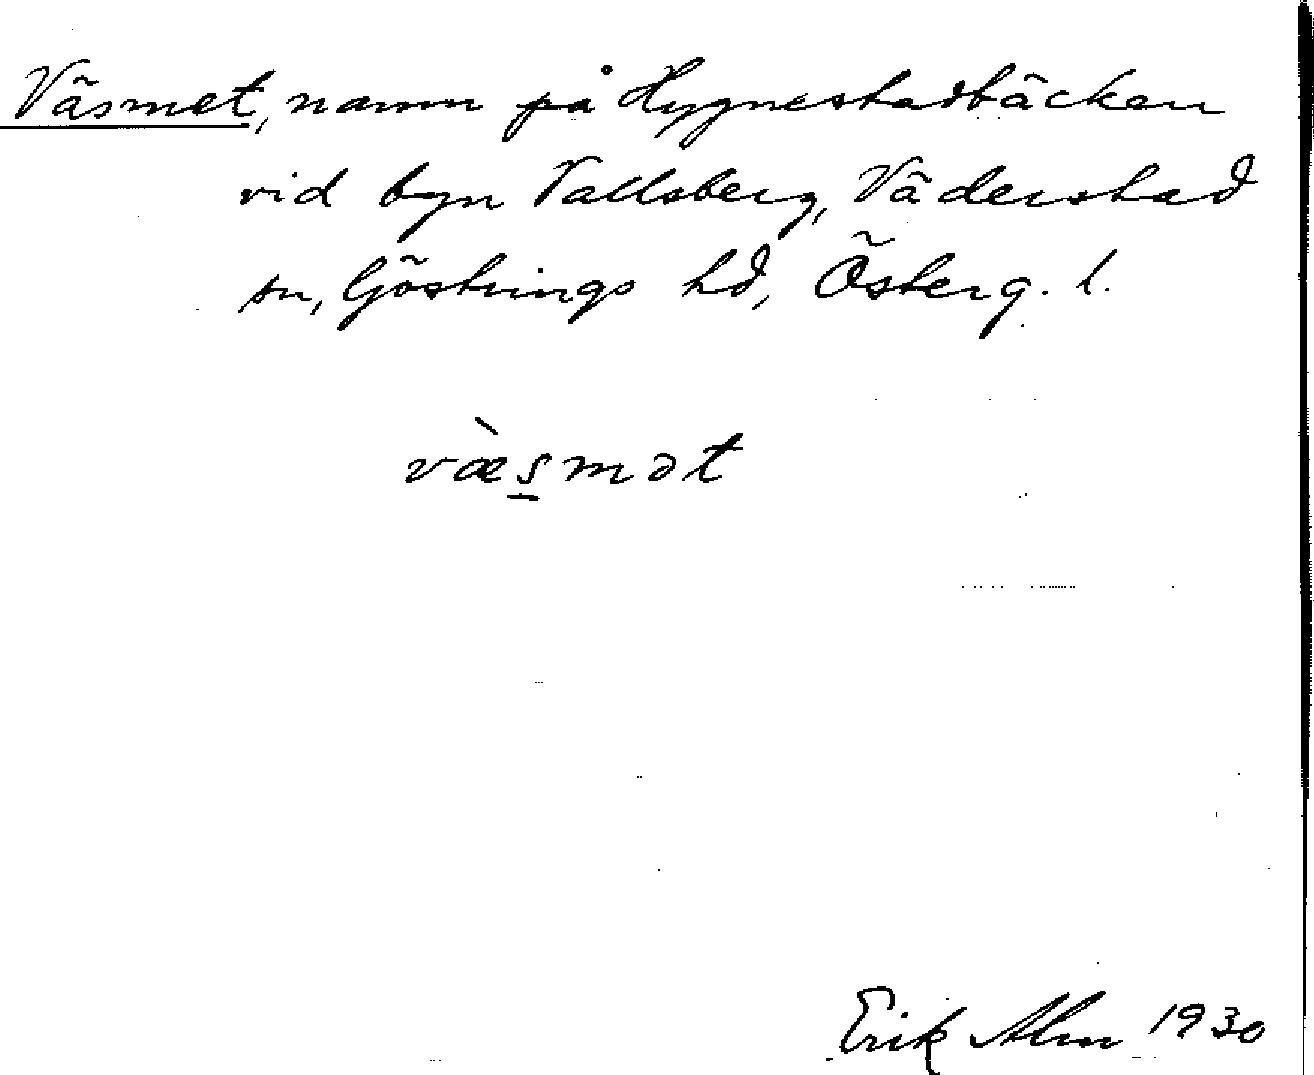 Väsmet, namn på Hygnestadbäcken
vid byn Vallsberg, Väderstad
sn, Göstrings hd, Österg. l.
væ̀s̲mət
Erik Alm 1930